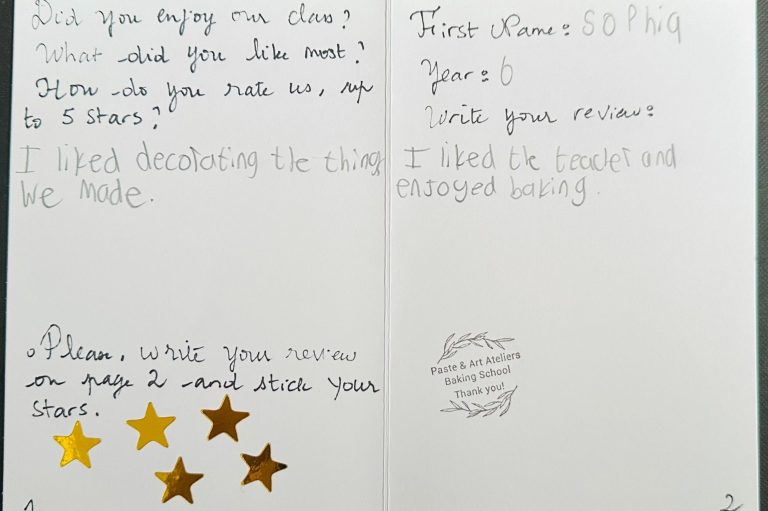 Did you enjoy our class?
What did you like most?
How do you rate us, up
to 5 stars?
I liked decorating the things
we made.
Please, write your review
on page 2 and stick your
stars.
1
First Name: Sophia
Year: 6
Write your review:
I liked the teacher and
enjoyed baking.
Paste & Art Ateliers
Baking School
Thank you!
2